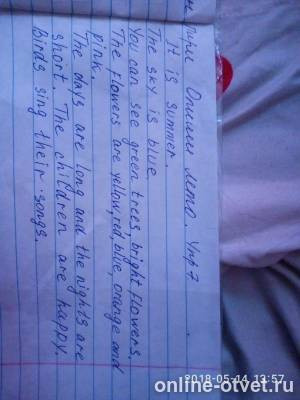 Опиши лето. Упр 7
It is summer.
The sky is blue.
You can see green trees, bright flowers.
The flowers are yellow, red, blue, orange and
pink.
The days are long and the nights are
short. The children are happy.
Birds sing their songs.
2018-05-14 13:57
online-otvet.ru